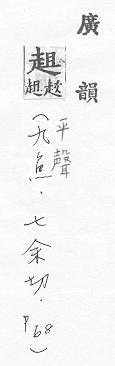 廣韻
趄
趑趄
平聲
（九魚．七余切．P68）